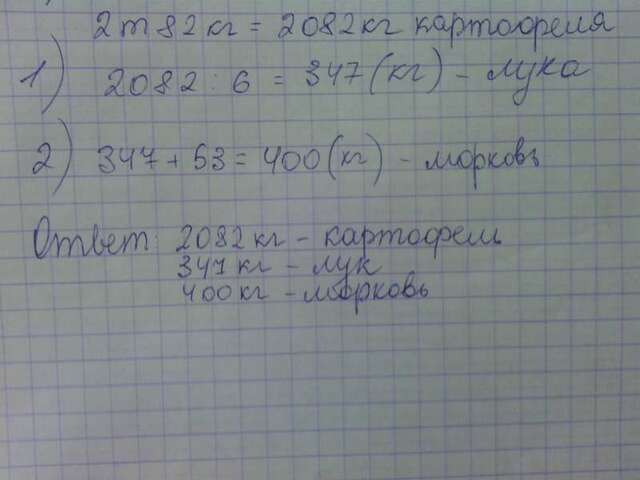 2т 82 кг = 2082 кг картофеля
1) 2082 : 6 = 347 (кг) - лука
2) 347 + 53 = 400 (кг) - морковь
Ответ: 2082 кг - картофель
347 кг - лук
400 кг - морковь